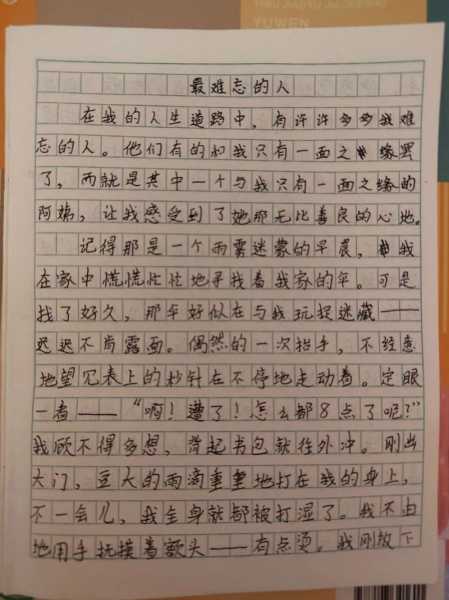 YUWEN
最难忘的人
在我的人生道路中，有许许多多我难
忘的人。他们有的和我只有一面之缘罢
了，而就是其中一个与我只有一面之缘的
阿姨，让我感受到了她那无比善良的心地。
记得那是一个雨雾迷蒙的早晨，我
在家中慌慌忙忙地寻找着我家的伞。可是
找了好久，那伞好似在与我玩捉迷藏——
迟迟不肯露面。偶然的一次抬手，不经意
地望见表上的秒针在不停地走动着。定眼
一看——“啊！遭了！怎么都8点了呢？”
我顾不得多想，背起书包就往外冲。刚出
大门，豆大的雨滴重重地打在我的身上，
不一会儿，我全身就都被打湿了。我不由
地用手抚摸着额头——有点烫。我刚放下